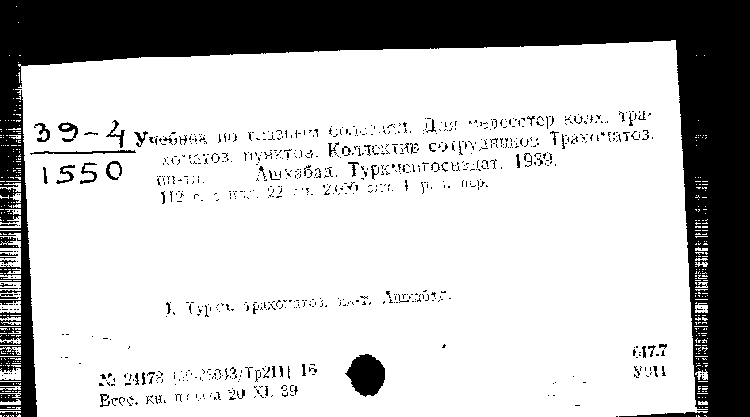 39-4
1550
Учебник по глазным болезням. Для медсестер колх. тра-
хоматоз. пунктов. Коллектив сотрудников Трахоматоз.
ин-та. Ашхабад, Туркменгосиздат, 1939.
112 с. с илл. 22 см. экз. 4 р. в пер.
1. Туркм. трахоматоз. ин-т. Ашхабад.
№ 24178 16
Всес. кн. палата 20 XI. 39
617.7